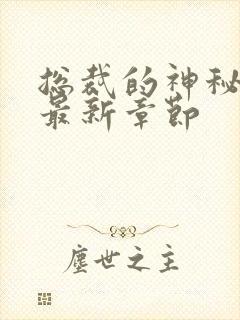 总裁的神秘
最新章節
塵世之主